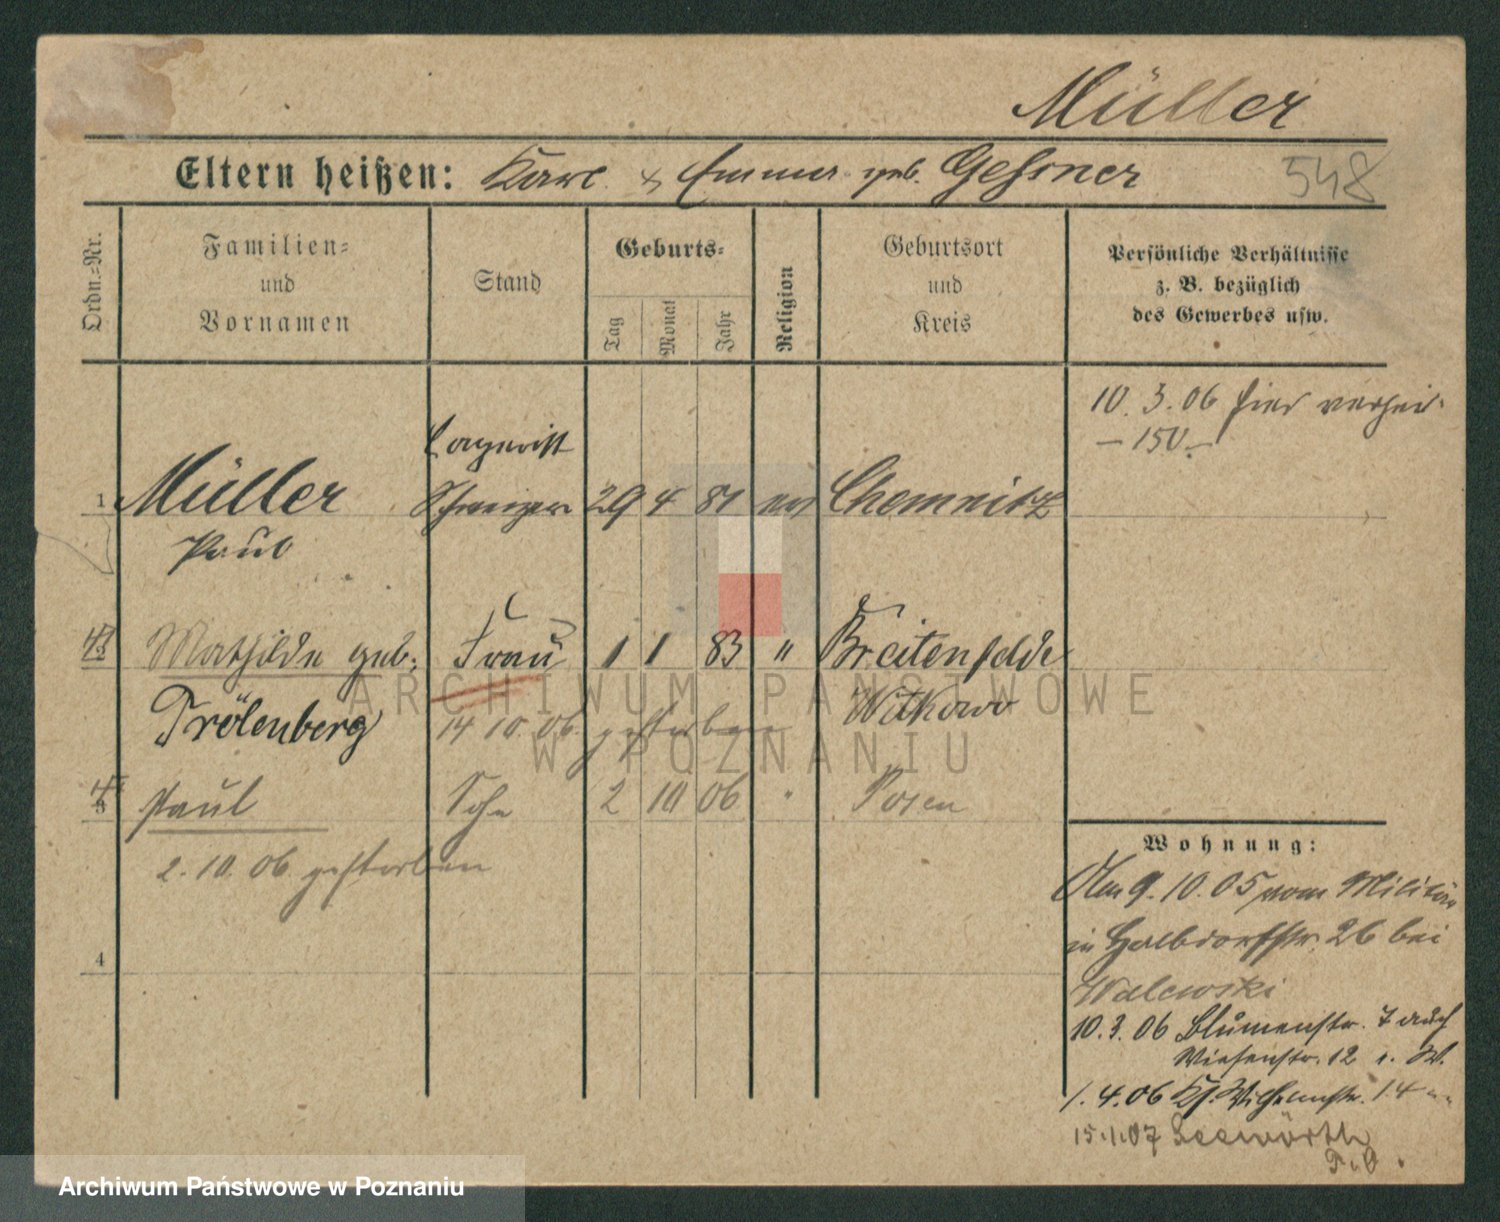 Müller
Eltern heißen: Karl & Emma geb. Gessner 548
Ordn.-Nr.
Familien-
und
Vornamen
Stand
Geburts-
Tag
Monat
Jahr
Religion
Geburtsort
und
Kreis
Persönliche Verhältnisse
z. B. bezüglich
des Gewerbes usw.
10. 3. 06 hier verhei.
- 150 -
Lagerist
1 Müller 29 4 81 ev Chemnitz
Paul
Mathilde geb. Frau 1 1 83 " Breitenfelde
Trölenberg Witkowo
14 10. 06. gestorben
3 Paul Sohn 2 10 06 " Posen
2. 10. 06. gestorben
4
Wohnung:
Am 9. 10. 05 vom Militär
in Halbdorfstr. 26 bei
Walewski
10. 3. 06 Blumenstr. 7 auch
Wiesenstr. 12 i. W.
1. 4. 06 Kl. Wilhelmstr. 14
15.1.07 Seewörth
P. O.
ARCHIWUM PAŃSTWOWE
W POZNANIU
Archiwum Państwowe w Poznaniu